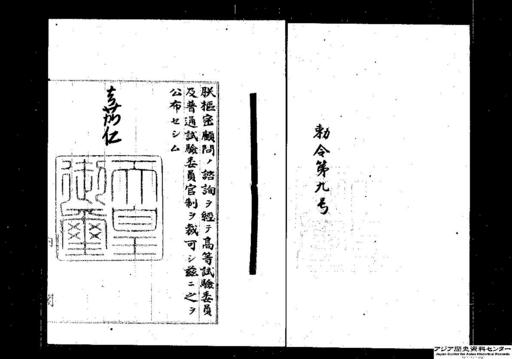 勅令第九号
朕樞密顧問ノ諮詢ヲ経テ高等試驗委員
及普通試驗委員官制ヲ裁可シ茲ニ之ヲ
公布セシム
嘉仁
天皇
御璽
アジア歴史資料センター
Japan Center for Asian Historical Records